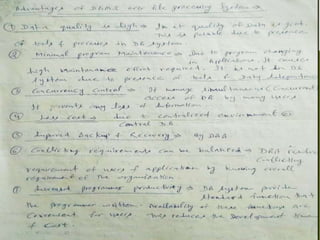 Advantages of DBMS over file processing system →
① Data quality is high → In it quality of data is good.
This is possible due to presence
of tools & processes in DB system.
② Minimal program maintenance → Due to program changing
in application it causes
high maintenance effort required. It is not in DB
system due to presence of tools & data independence
③ Concurrency control → It manage simultaneous (concurrent)
access of DB by many users
It prevents any loss of information.
④ Less cost → due to centralized environment &
control DB
⑤ Improved Backup & Recovery → by DBA
⑥ Conflicting requirements can be balanced → DBA resolve
conflicting
requirement of users & application by knowing overall
requirement of the organisation.
⑦ Increased programmer productivity → DB system provide
standard function that
the programmer written. Availability of these
convenient for users. This reduces the development time
& cost.